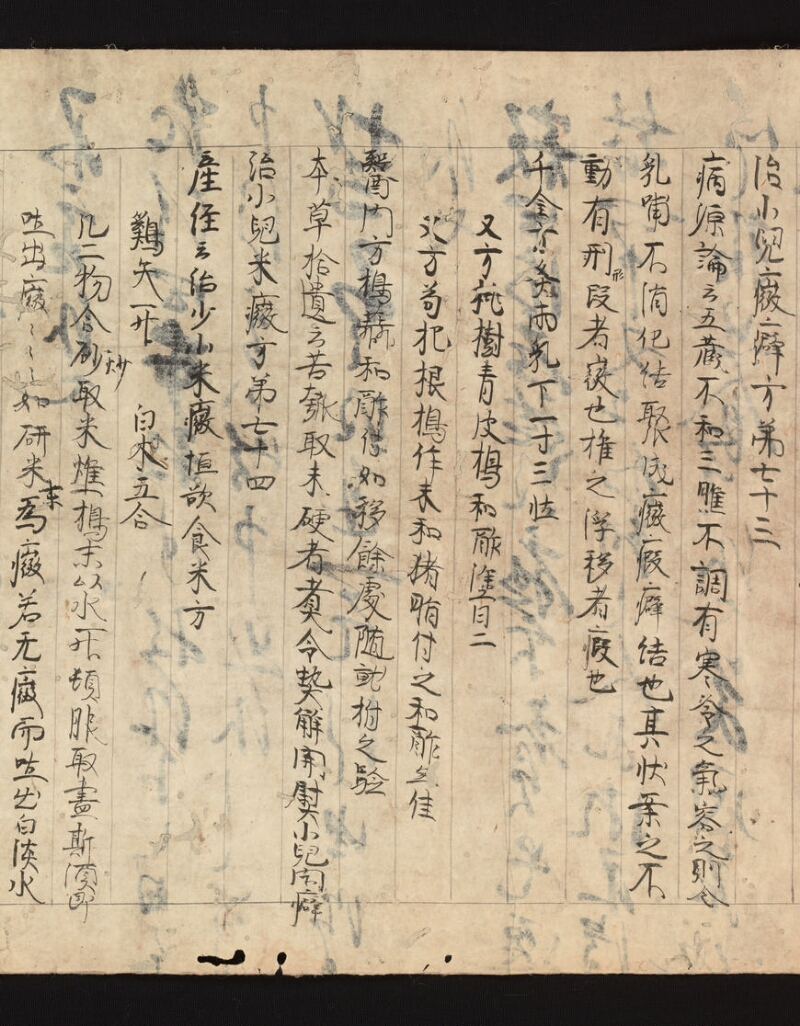 治小兒癥癖方第七十三
病源論云五藏不和三膲不調有寒冷之氣客之則令
乳哺不消化結聚成癥瘕癖結也其狀案之不
動有形段者癥也推之浮移者瘕也
千金方灸兩乳下一寸三壮
又方桃樹青皮擣和酢塗百二
又方苟杞根擣作末和猪脂付之和酢亦佳
醫門方擣蒜和酢付如移餘處随就拊之驗
本草拾遺云苦瓠取未硬者煮令熱解開熨小兒閃癖
治小兒米癥方第七十四
産経云治少小米癥恒欲食米方
鷄矢一升 白米五合
凡二物合炒取米燋擣末以水一升頓服取盡斯須即
吐出癥〻〻如研米爲癥若无癥而吐出白淡水